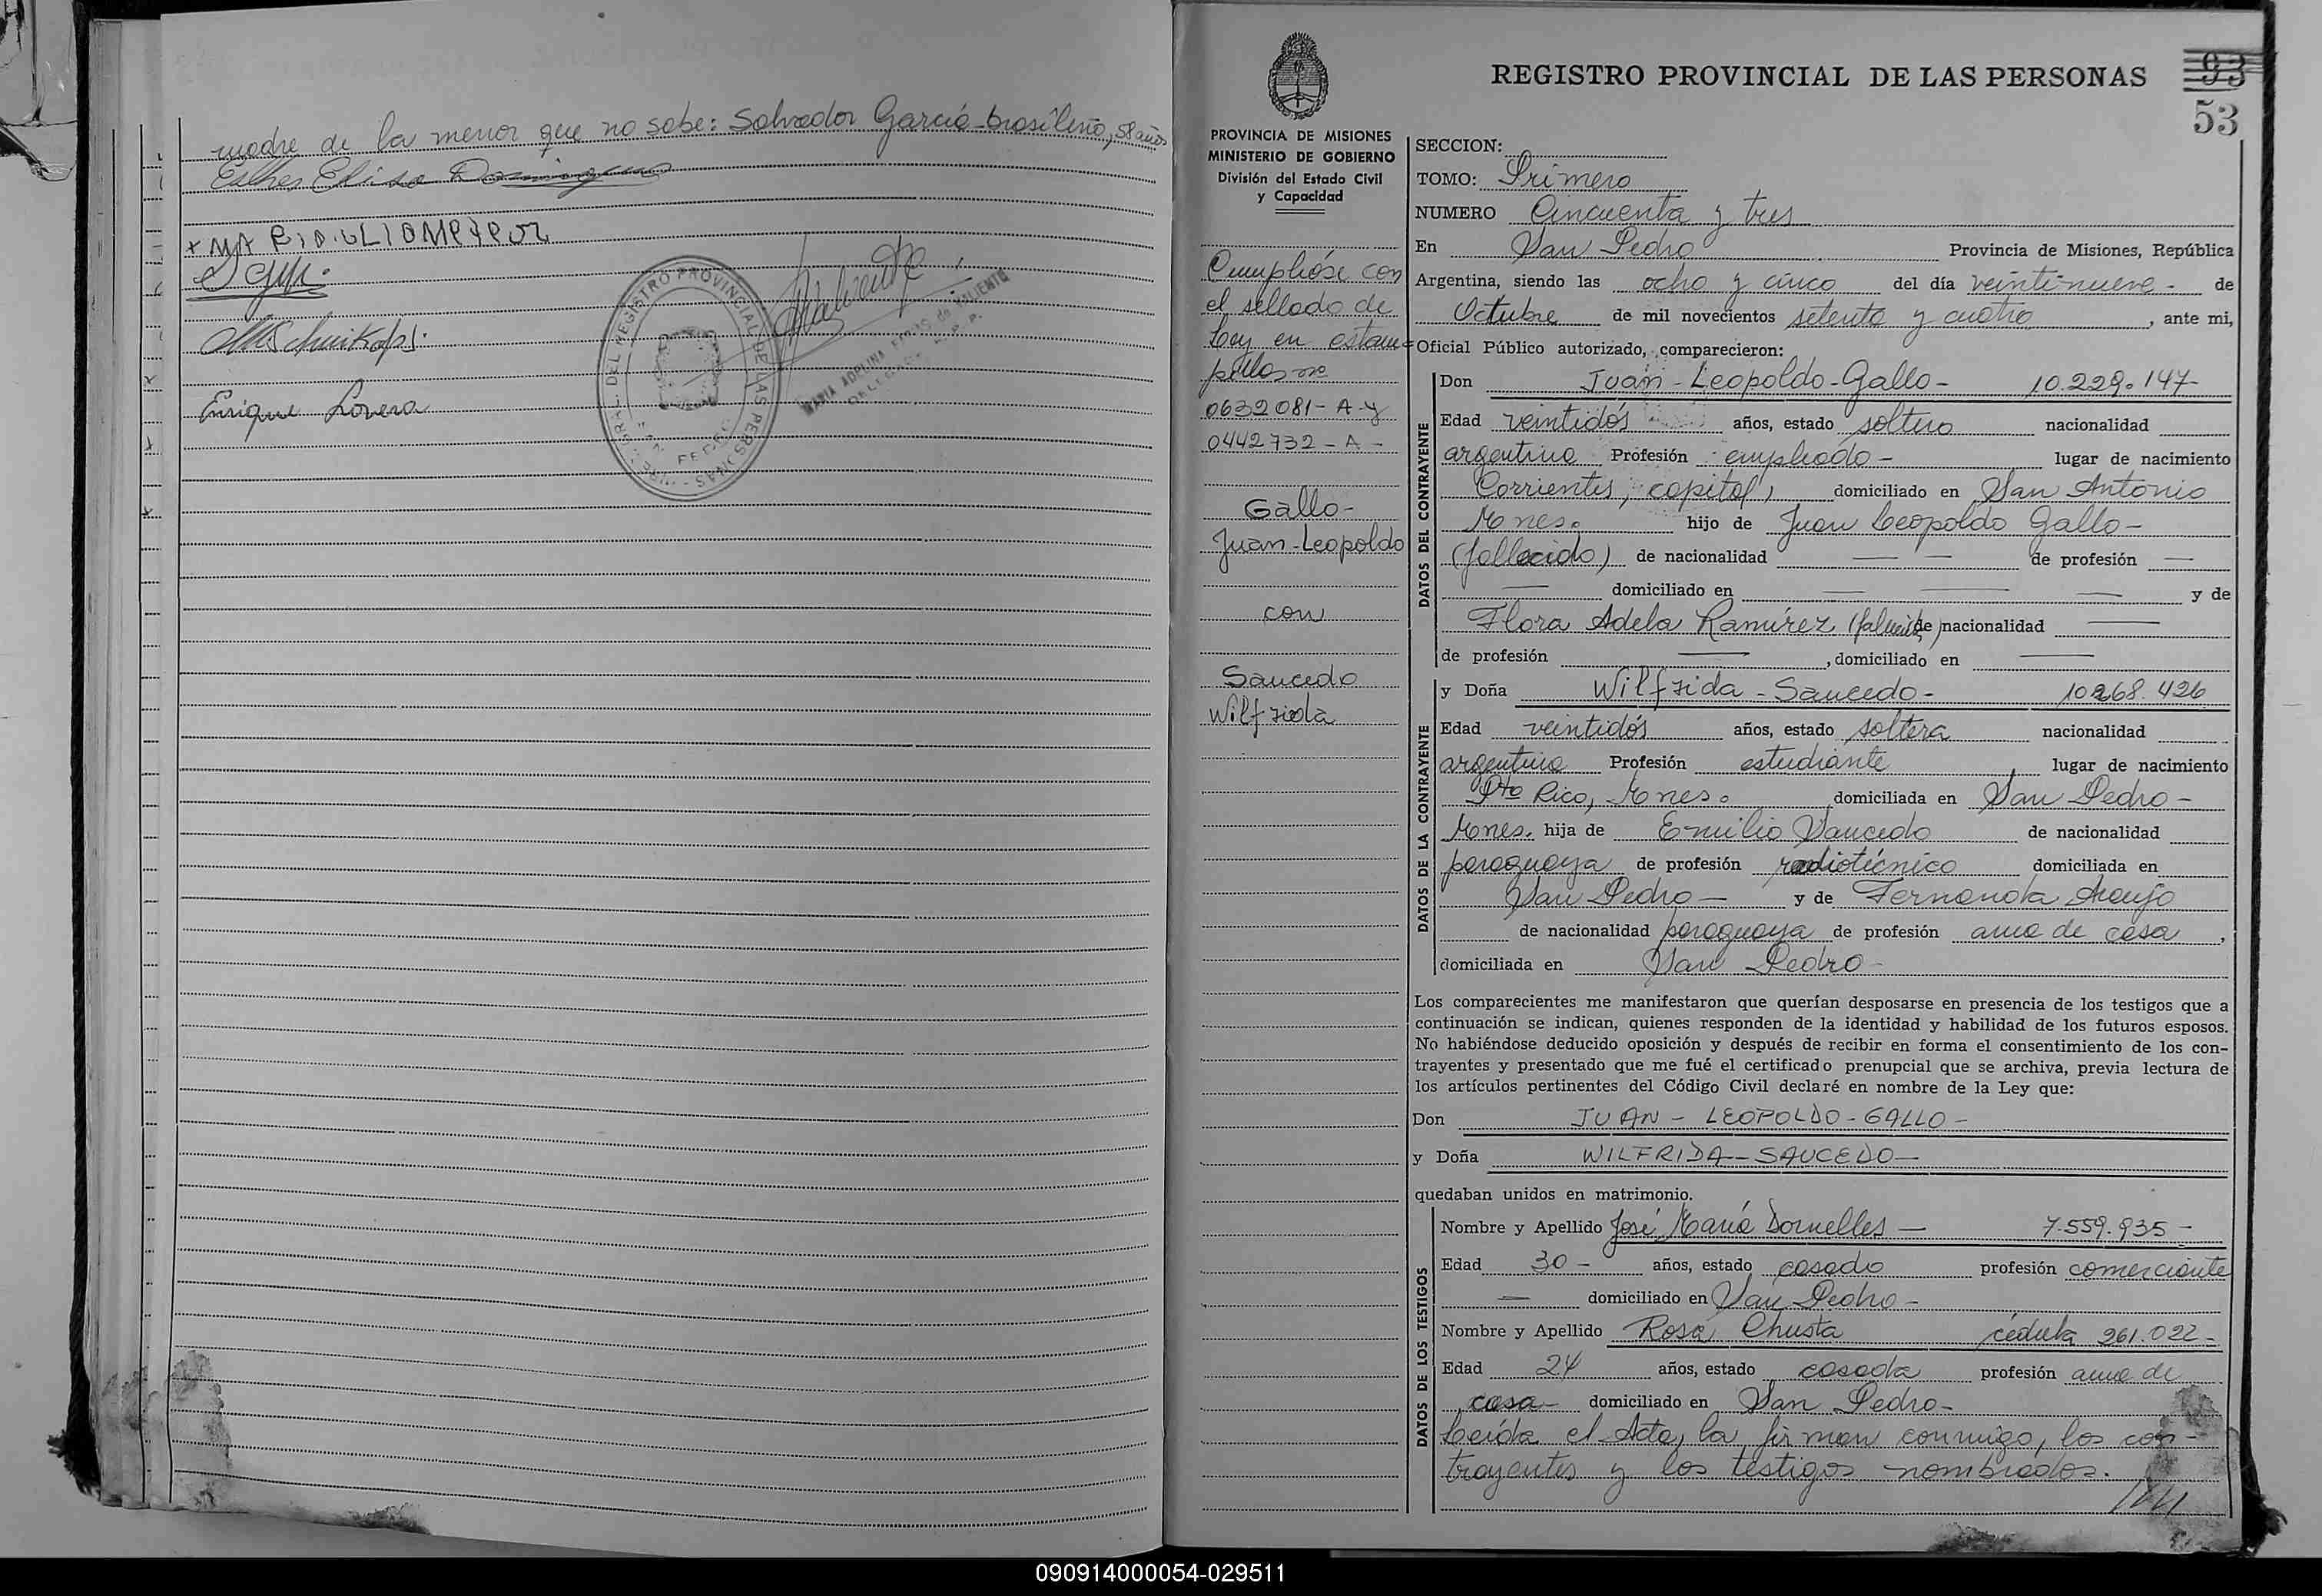 madre de la menor que no sabe: Salvador García-brasileño, 58 años
Enrique Lovera
REGISTRO PROVINCIAL DE LAS PERSONAS
93
53
PROVINCIA DE MISIONES
MINISTERIO DE GOBIERNO
División del Estado Civil
y Capacidad
Cumplióse con
el sellado de
Ley en estam-
pillas
0632081-A-y
0442732-A-
Gallo-
Juan-Leopoldo
con
Saucedo
Wilfrida
SECCION:
TOMO: Primero
NUMERO Cincuenta y tres
En San Pedro Provincia de Misiones, República
Argentina, siendo las ocho y cinco del día veintinueve- de
Octubre de mil novecientos setenta y cuatro, ante mi,
Oficial Público autorizado, comparecieron:
DATOS DEL CONTRAYENTE
Don Juan-Leopoldo-Gallo- 10.229.147-
Edad veintidós años, estado soltero nacionalidad
argentina Profesión empleado- lugar de nacimiento
Corrientes, capital, domiciliado en San Antonio
Mnes. hijo de Juan Leopoldo Gallo-
(fallecido) de nacionalidad — — de profesión —
— domiciliado en — — — y de
Flora Adela Ramírez de nacionalidad —
de profesión —, domiciliado en —
DATOS DE LA CONTRAYENTE
y Doña Wilfrida-Saucedo- 10.268.426
Edad veintidós años, estado soltera nacionalidad
argentina Profesión estudiante, lugar de nacimiento
Pto Rico, Mnes. domiciliada en San Pedro-
Mnes. hija de Emilio Saucedo de nacionalidad
paraguaya de profesión radiotécnico domiciliada en
San Pedro— y de Fernanda Araujo
de nacionalidad paraguaya de profesión ama de casa,
domiciliada en San Pedro-
Los comparecientes me manifestaron que querían desposarse en presencia de los testigos que a
continuación se indican, quienes responden de la identidad y habilidad de los futuros esposos.
No habiéndose deducido oposición y después de recibir en forma el consentimiento de los con-
trayentes y presentado que me fué el certificado prenupcial que se archiva, previa lectura de
los artículos pertinentes del Código Civil declaré en nombre de la Ley que:
Don JUAN-LEOPOLDO-GALLO-
y Doña WILFRIDA-SAUCEDO-
quedaban unidos en matrimonio.
DATOS DE LOS TESTIGOS
Nombre y Apellido José María Dornelles— 7.559.935-
Edad 30- años, estado casado profesión comerciante
— domiciliado en San Pedro-
Nombre y Apellido Rosa Chusta cédula 261.022-
Edad 24 años, estado casada profesión ama de
casa- domiciliado en San Pedro-
Leída el Acta, la firman conmigo, los con-
trayentes y los testigos nombrados.
090914000054-029511